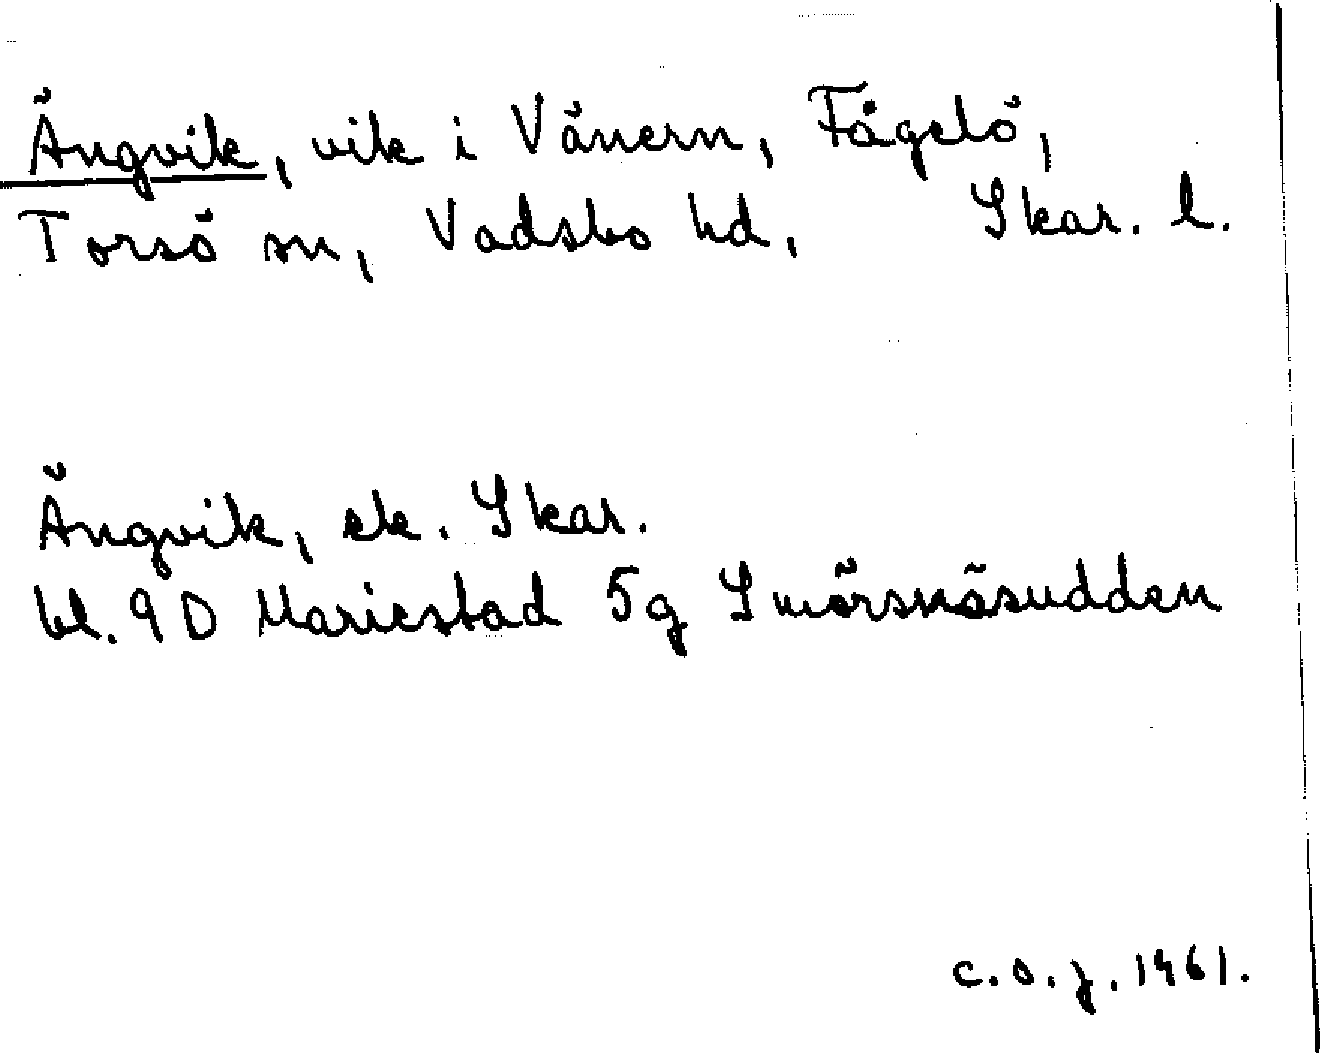 Ängvik, vik i Vänern, Fågelö,
Torsö sn, Vadsbo hd, Skar. l.
Ängvik, ek. Skar.
bl. 9D Mariestad 5g Smörsnäsudden
c.o.j. 1961.